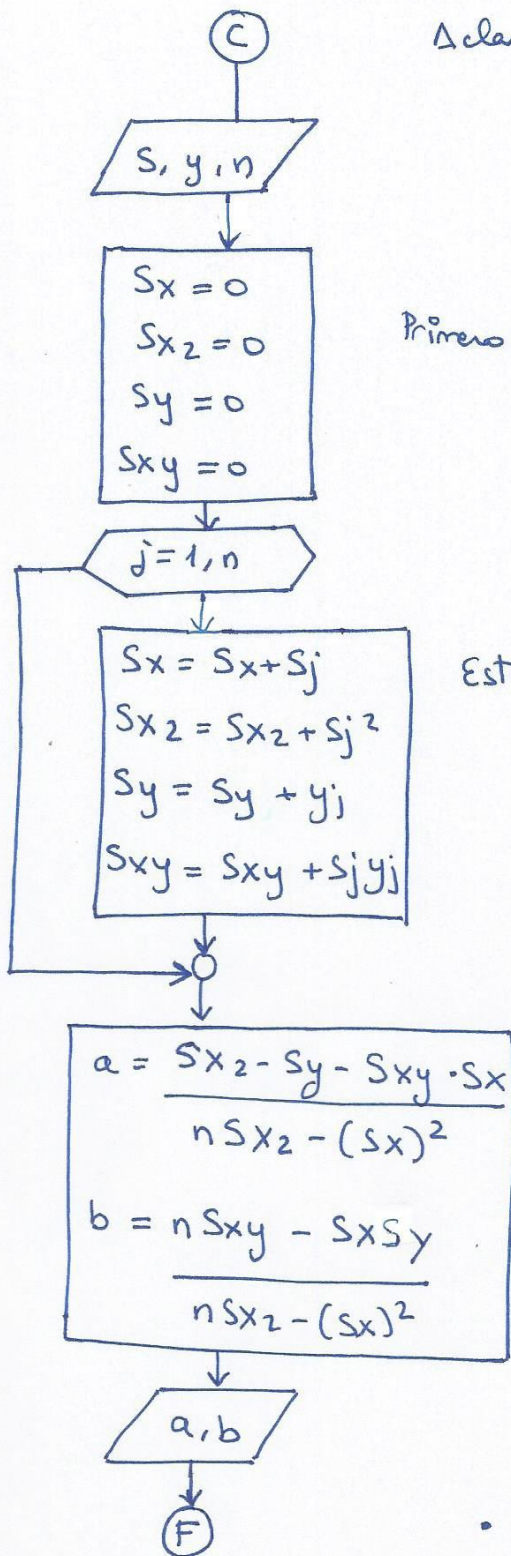 C
S, y, n
Sx = 0
Sx₂ = 0
Sy = 0
Sxy = 0
Primero
j = 1, n
Sx = Sx + Sj
Sx₂ = Sx₂ + Sj²
Sy = Sy + yj
Sxy = Sxy + Sjyj
a = Sx₂ - Sy - Sxy · Sx
nSx₂ - (Sx)²
b = nSxy - SxSy
nSx₂ - (Sx)²
a, b
F